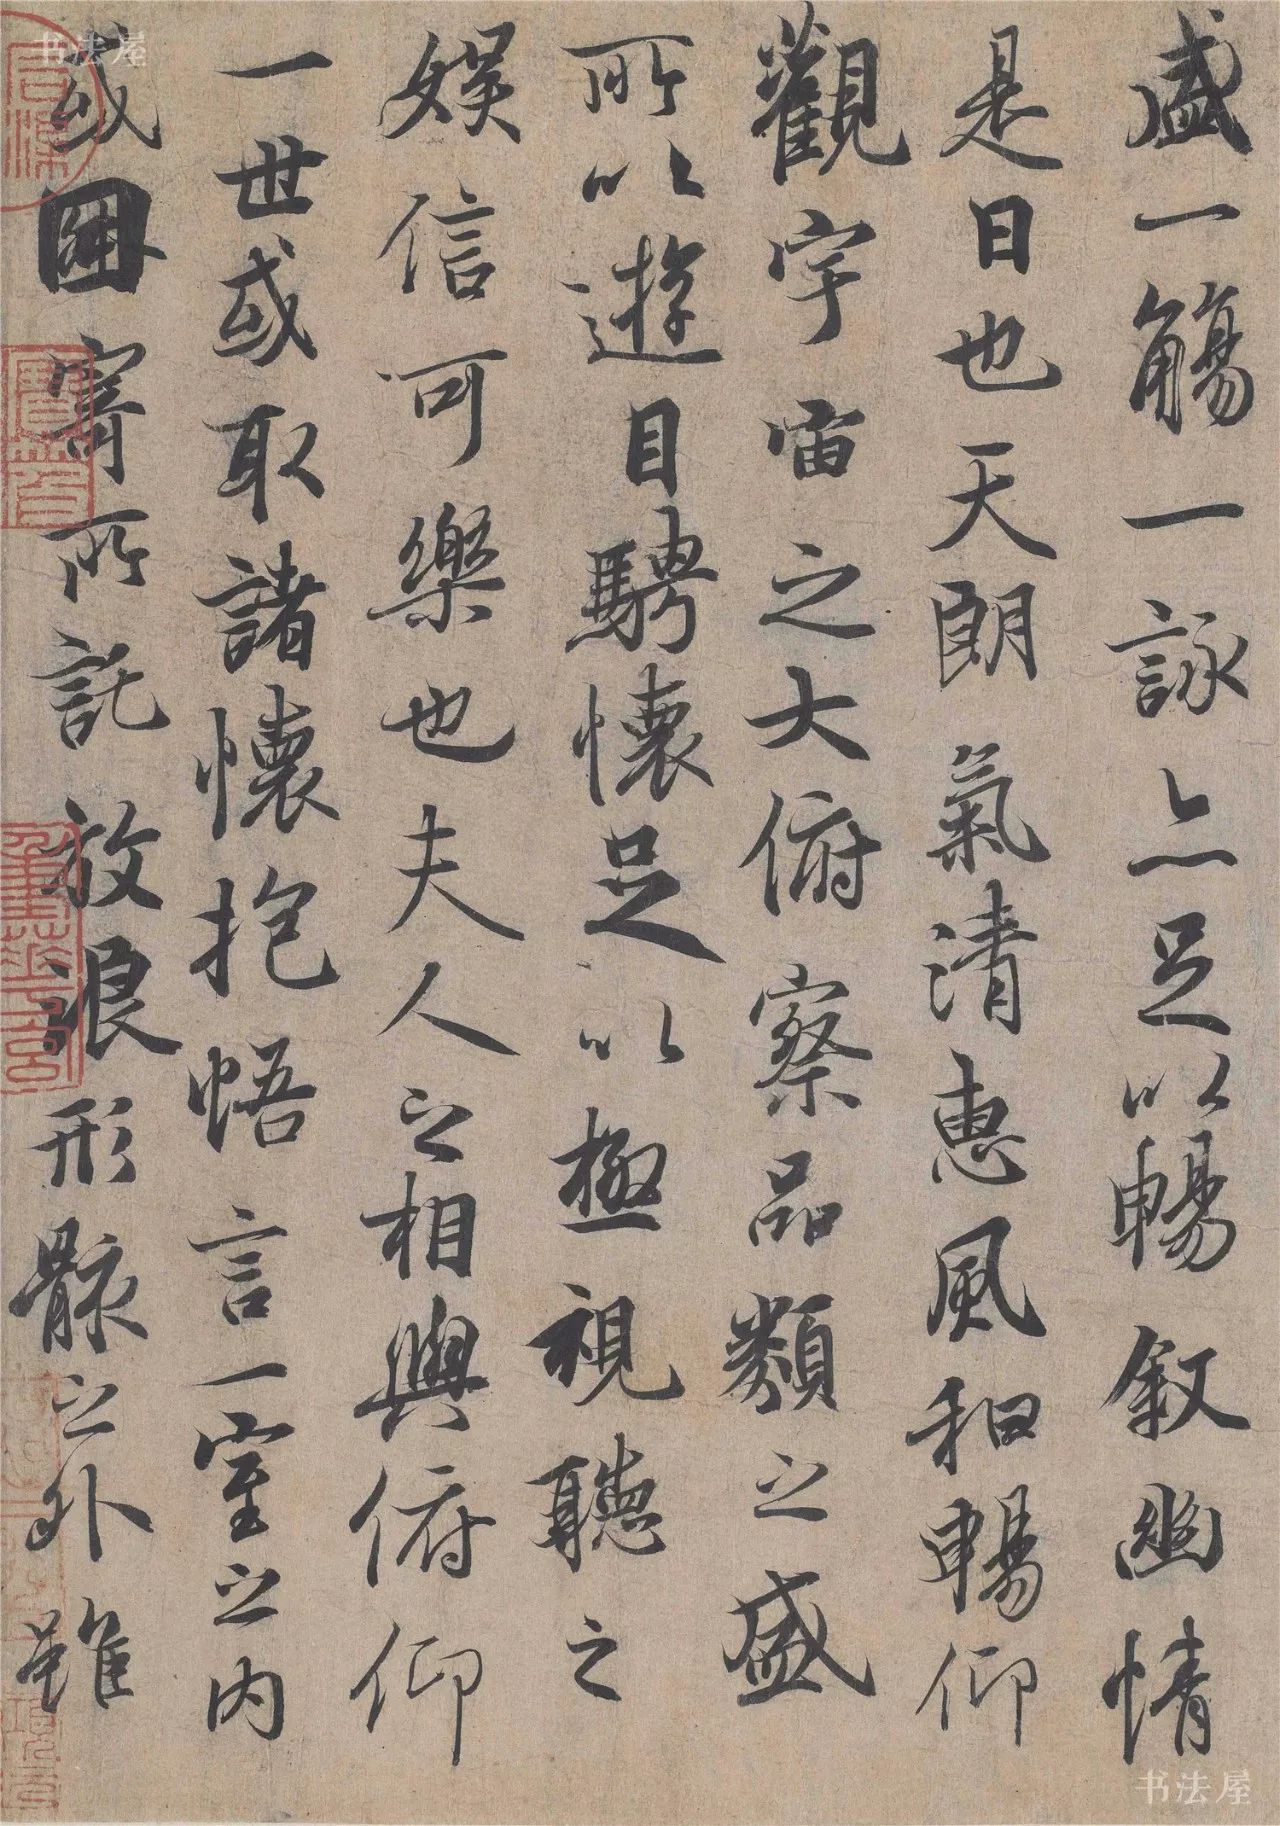 盛一觴一詠亦足以暢敘幽情
是日也天朗氣清惠風和暢仰
觀宇宙之大俯察品類之盛
所以遊目騁懷足以極視聽之
娛信可樂也夫人之相與俯仰
一世或取諸懷抱悟言一室之內
或因寄所託放浪形骸之外雖
书法屋
书法屋